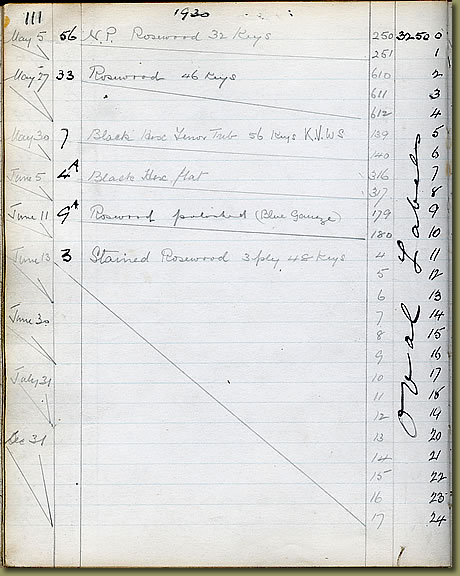 111 1930
May 5 56 N.P. Rosewood 32 Keys 250 32500
251 1
May 27 33 Rosewood 46 Keys 610 2
611 3
612 4
May 30 7 Black Hex Tenor Treb 56 Keys K.V.W.S 139 5
140 6
June 5 4A Black Hex flat 316 7
317 8
June 11 9A Rosewood polished (Blue Gauze) 179 9
180 10
June 13 3 Stained Rosewood 3 ply 48 Keys 4 11
5 12
6 13
June 30 7 14
8 15
9 16
July 31 10 17
11 18
12 19
Dec 31 13 20
14 21
15 22
16 23
17 24
Oval Labels